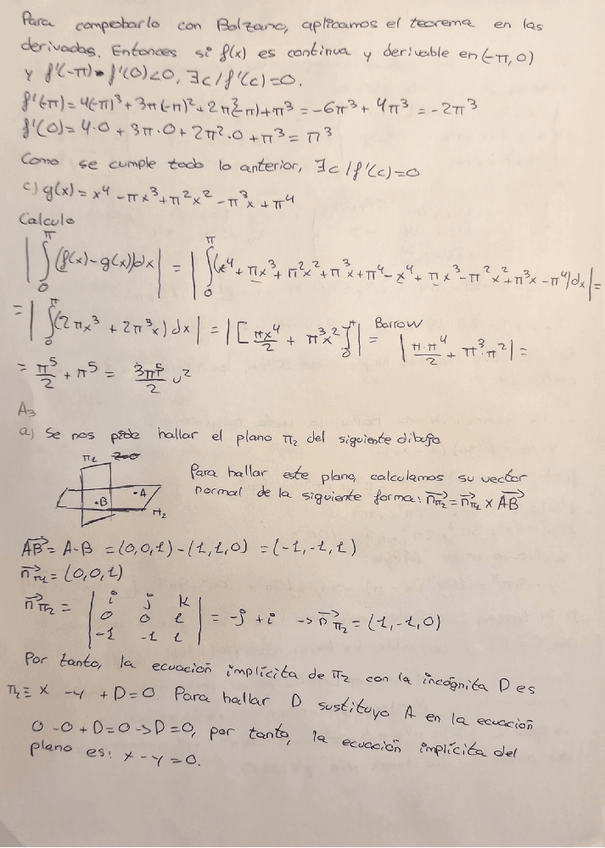 Para comprobarlo con Bolzano, aplicamos el teorema en las
derivadas. Entonces si f(x) es continua y derivable en (-π, 0)
y f'(-π)·f'(0)<0, ∃c/f'(c)=0.
f'(-π)=4(-π)³+3π(-π)²+2π²(-π)+π³=-6π³+4π³=-2π³
f'(0)=4·0+3π·0+2π²·0+π³=π³
Como se cumple todo lo anterior, ∃c/f'(c)=0
c) g(x)=x⁴-πx³+π²x²-π³x+π⁴
Calculo
|∫₀^π (f(x)-g(x))dx| = |∫₀^π (x⁴+πx³+π²x²+π³x+π⁴-x⁴+πx³-π²x²+π³x-π⁴)dx|=
=|∫₀^π (2πx³+2π³x)dx|=|[πx⁴/2+π³x²]₀^π| = Barrow |π·π⁴/2+π³·π²|=
=π⁵/2+π⁵=3π⁵/2 u²
A₃
a) Se nos pide hallar el plano π₂ del siguiente dibujo
π₂
·A
·B
π₂
Para hallar este plano, calculamos su vector
normal de la siguiente forma: n⃗π₂=n⃗π₁×AB⃗
AB⃗=A-B=(0,0,1)-(1,1,0)=(-1,-1,1)
n⃗π₁=(0,0,1)
n⃗π₂=|i j k; 0 0 1; -1 -1 1|=-j+i -> n⃗π₂=(1,-1,0)
Por tanto, la ecuación implícita de π₂ con la incógnita D es
π₂≡x-y+D=0 Para hallar D sustituyo A en la ecuación
0-0+D=0->D=0, por tanto, la ecuación implícita del
plano es: x-y=0.